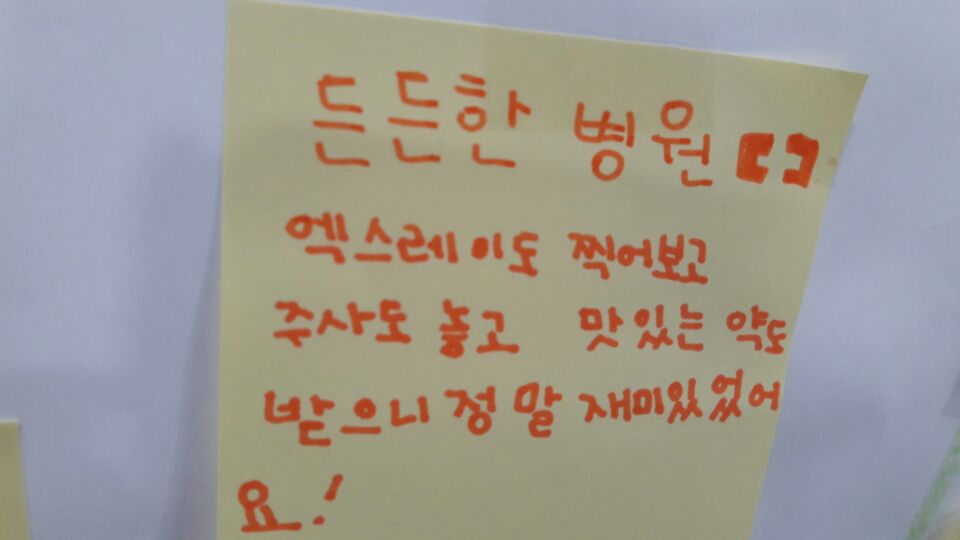 든든한 병원
엑스레이도 찍어보고
주사도 놓고 맛있는 약도
받으니 정말 재미있었어
요!